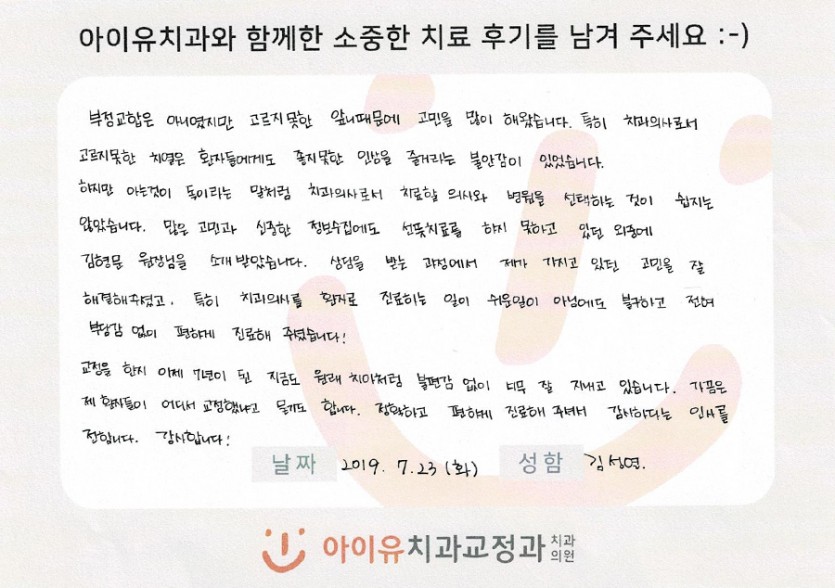 아이유치과와 함께한 소중한 치료 후기를 남겨 주세요 :-)
부정교합은 아니였지만 고르지못한 앞니때문에 고민을 많이 해왔습니다. 특히 치과의사로서
고르지못한 치열은 환자들에게도 좋지못한 인상을 줄거라는 불안감이 있었습니다.
하지만 아는것이 독이라는 말처럼 치과의사로서 치료할 의사와 병원을 선택하는 것이 쉽지는
않았습니다. 많은 고민과 신중한 정보수집에도 선뜻치료를 하지 못하고 있던 와중에
김형문 원장님을 소개받았습니다. 상담을 받는 과정에서 제가 가지고 있던 고민을 잘
해결해주셨고, 특히 치과의사를 환자로 진료하는 일이 쉬운일이 아님에도 불구하고 전혀
부담감 없이 편하게 진료해 주셨습니다!
교정을 한지 이제 7년이 된 지금도 원래 치아처럼 불편감 없이 너무 잘 지내고 있습니다. 가끔은
제 환자들이 어디서 교정했냐고 묻기도 합니다. 정확하고 편하게 진료해 주셔서 감사하다는 인사를
전합니다. 감사합니다!
날짜 2019. 7.23 (화) 성함 김성연.
아이유치과교정과 치과의원